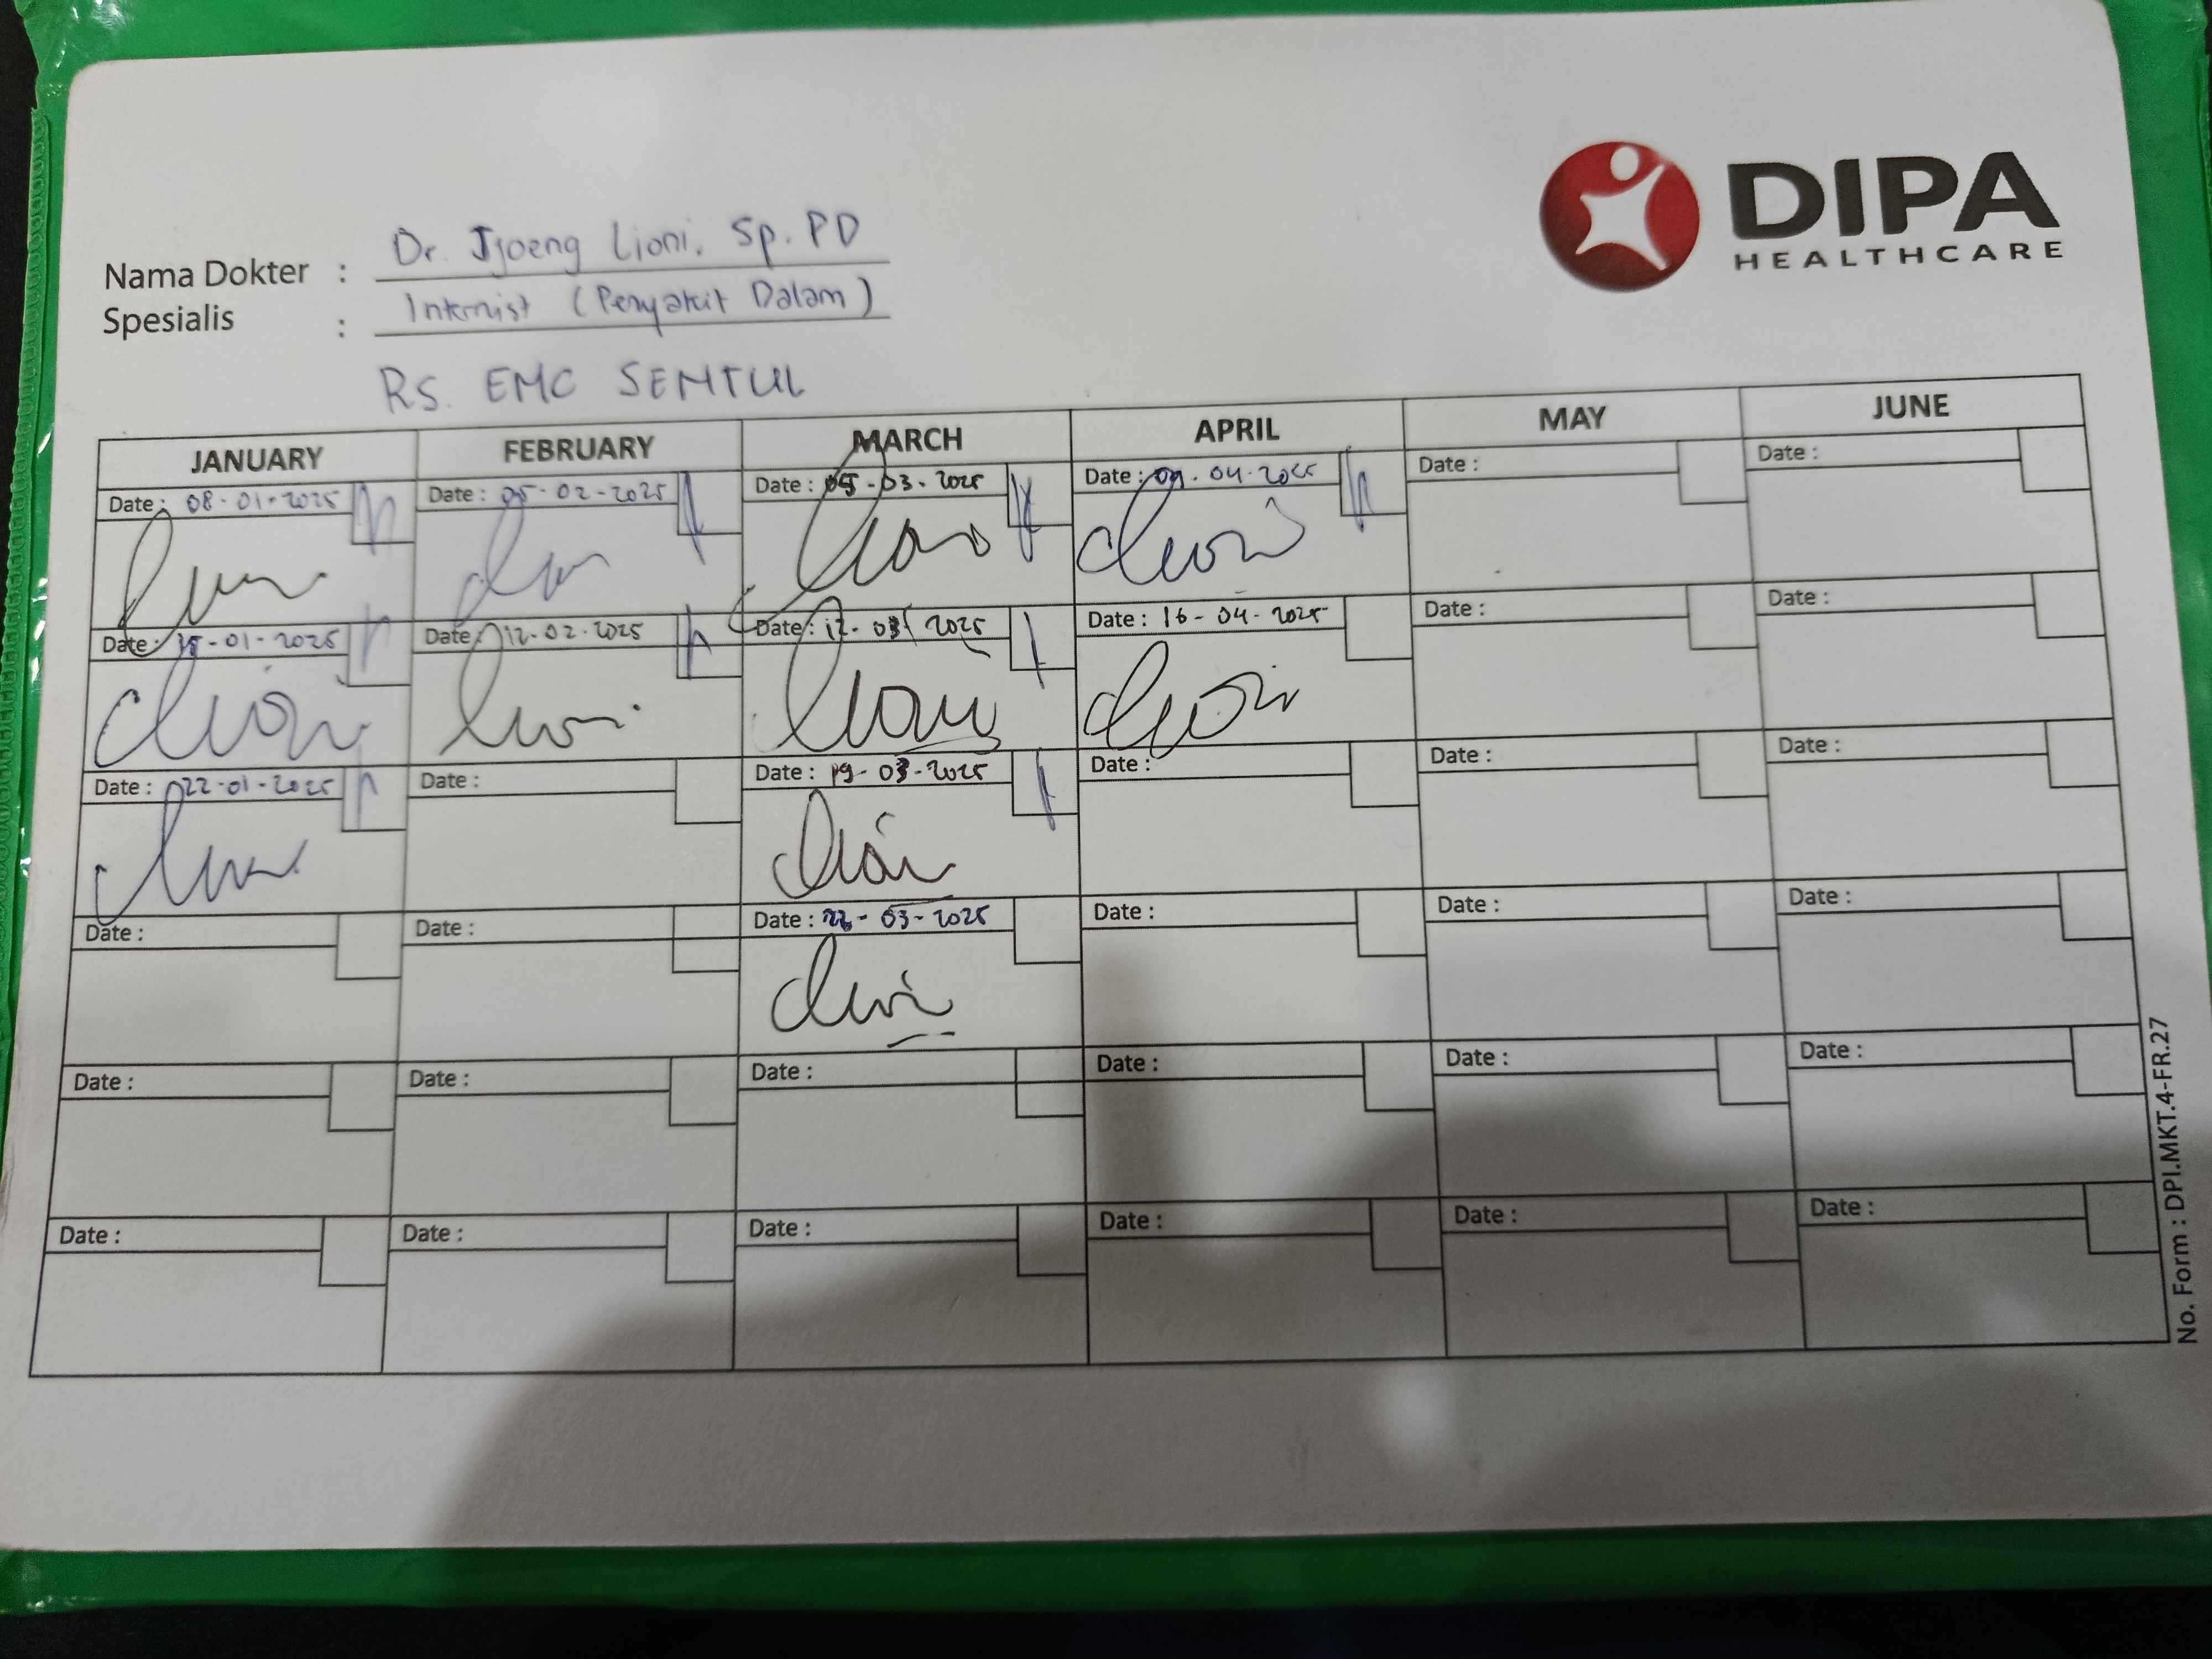 DIPA
HEALTHCARE
Nama Dokter : Dr. Tjoeng Lioni. Sp. PD
Spesialis : Internist (Penyakit Dalam)
RS. EMC SENTUL
JANUARY FEBRUARY MARCH APRIL MAY JUNE
Date : 08-01-2025 Date : 05-02-2025 Date : 05-03-2025 Date : 09-04-2025 Date : Date :
Date : 15-01-2025 Date : 12-02-2025 Date : 12-03-2025 Date : 16-04-2025 Date : Date :
Date : 22-01-2025 Date : Date : 19-03-2025 Date : Date : Date :
Date : Date : Date : -03-2025 Date : Date : Date :
Date : Date : Date : Date : Date : Date :
Date : Date : Date : Date : Date : Date :
No. Form : DPI.MKT.4-FR.27